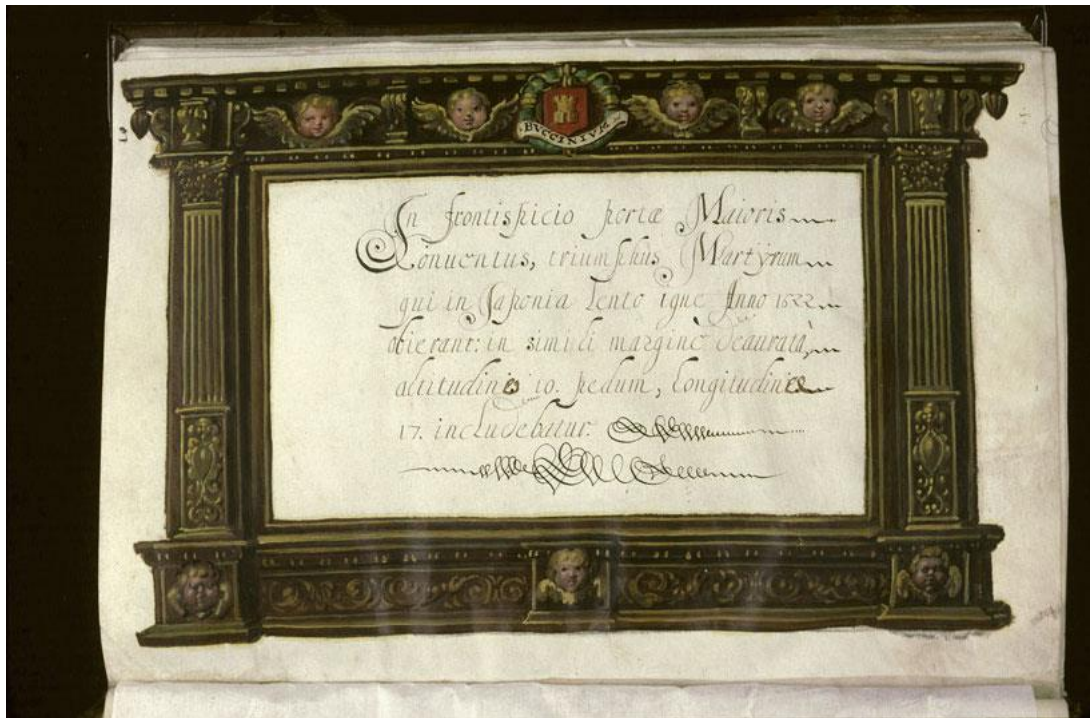 BVCCINIVM
In frontispicio portæ Maioris
Conuentus, triumphus Martyrum
qui in Japonia lento igne Anno 1622
obierant: in simili margine deaurata,
altitudinis 10. pedum, longitudinis
17. includebatur.